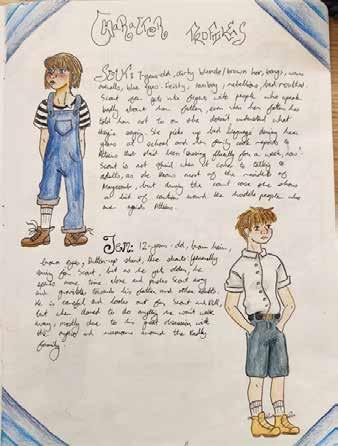 CHARACTER PROFILES
Scout: 7-years-old, dirty blonde/brown hair, bangs, wears
overalls, blue eyes. Feisty, tomboy, rebellious, bad mouthed.
Scout often gets into fights with people who speak
badly about her father, even when her father has
told her not to or she doesn't understand what
they're saying. She picks up bad language during her
years at school and her family cook reports to
Atticus that she'd been 'cussing fluently for a week, now'
Scout is not afraid when it comes to talking to
adults, as she knows most of the residents of
Maycomb, but during the court case she shows
a bit of caution around the people who
are against Atticus.
Jem: 12-years-old, brown hair,
brown eyes, button-up shirt, shorts. Generally
caring for Scout, but as he gets older, he
spends more time alone and pushes Scout away
and towards his father and other adults.
He is careful and looks out for Scout and Dill,
but when dared to do anything he won't walk
away, mostly due to his great obsession with
the myths and rumours around the Radley
family.